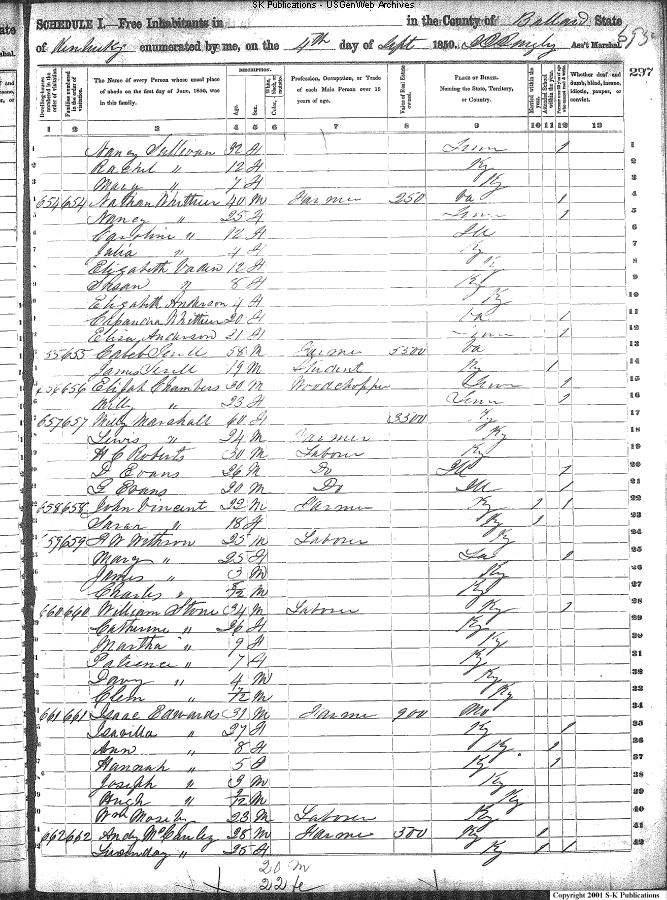 SK Publications - USGenWeb Archives
SCHEDULE I.—Free Inhabitants in in the County of Ballard State
of Kentucky enumerated by me, on the 4th day of Sept 1850. Ass't Marshal.
297
Dwelling-houses numbered in the order of visitation.
Families numbered in the order of visitation.
The Name of every Person whose usual place of abode on the first day of June, 1850, was in this family.
DESCRIPTION.
Age.
Sex.
Color, White, black, or mulatto.
Profession, Occupation, or Trade of each Male Person over 15 years of age.
Value of Real Estate owned.
PLACE OF BIRTH. Naming the State, Territory, or Country.
Married within the year.
Attended School within the year.
Whether deaf and dumb, blind, insane, idiotic, pauper, or convict.
1 2 3 4 5 6 7 8 9 10 11 12 13
Nancy Sullivan 32 f Tenn 1 1
Rachel " 12 f Ky 2
Mary " 7 f Ky 3
654 654 Nathan Whittier 40 M Farmer 250 Va 1 4
Nancy " 25 f Tenn 1 5
Caroline " 12 f Ill 6
Julia " 4 f Ky 7
Elizabeth 12 f Ky 8
" 8 f Ky 9
Elizabeth Anderson 4 f Ky 10
Whittier 20 f Va 1 11
Eliza Anderson 21 f 1 12
655 Caleb 58 M Farmer 5500 Va 13
James 19 M Student Ky 1 14
656 Elijah Chambers 30 M Woodchopper Tenn 1 15
Milly " 23 f Tenn 1 16
657 657 Milly Marshall 60 f 3500 Ky 17
Lewis " 24 M Farmer Ky 18
H C Roberts 30 M Laborer Ky 19
D Evans 26 M Do Ill 1 20
G Evans 20 M Do Ill 1 21
658 658 John Vincent 22 M Farmer Ky 1 1 22
Sarar " 18 f Ky 1 23
659 Withron 25 M Laborer Ky 24
Mary " 25 f 1 25
James " 3 M Ky 26
Charles " /12 M Ky 27
660 660 William Stone 34 M Laborer Ky 1 28
Catherine " 26 f Ky 29
Martha " 9 f Ky 30
Patience " 7 f Ky 31
" 4 M Ky 32
Clem " /12 M Ky 33
661 661 Isaac Edwards 31 M Farmer 900 Mo 34
Isavilla " 27 f Ky 1 35
Ann " 8 f Ky 1 36
Hannah " 5 f Ky 1 37
Joseph " 3 M Ky 38
Hugh " /12 M Ky 39
Wm Moseby 23 M Laborer Ky 40
662 662 Andy McCauley 28 M Farmer 300 Ky 1 41
" 25 f Ky 1 1 42
20 m
22 fe
Copyright 2001 S-K Publications